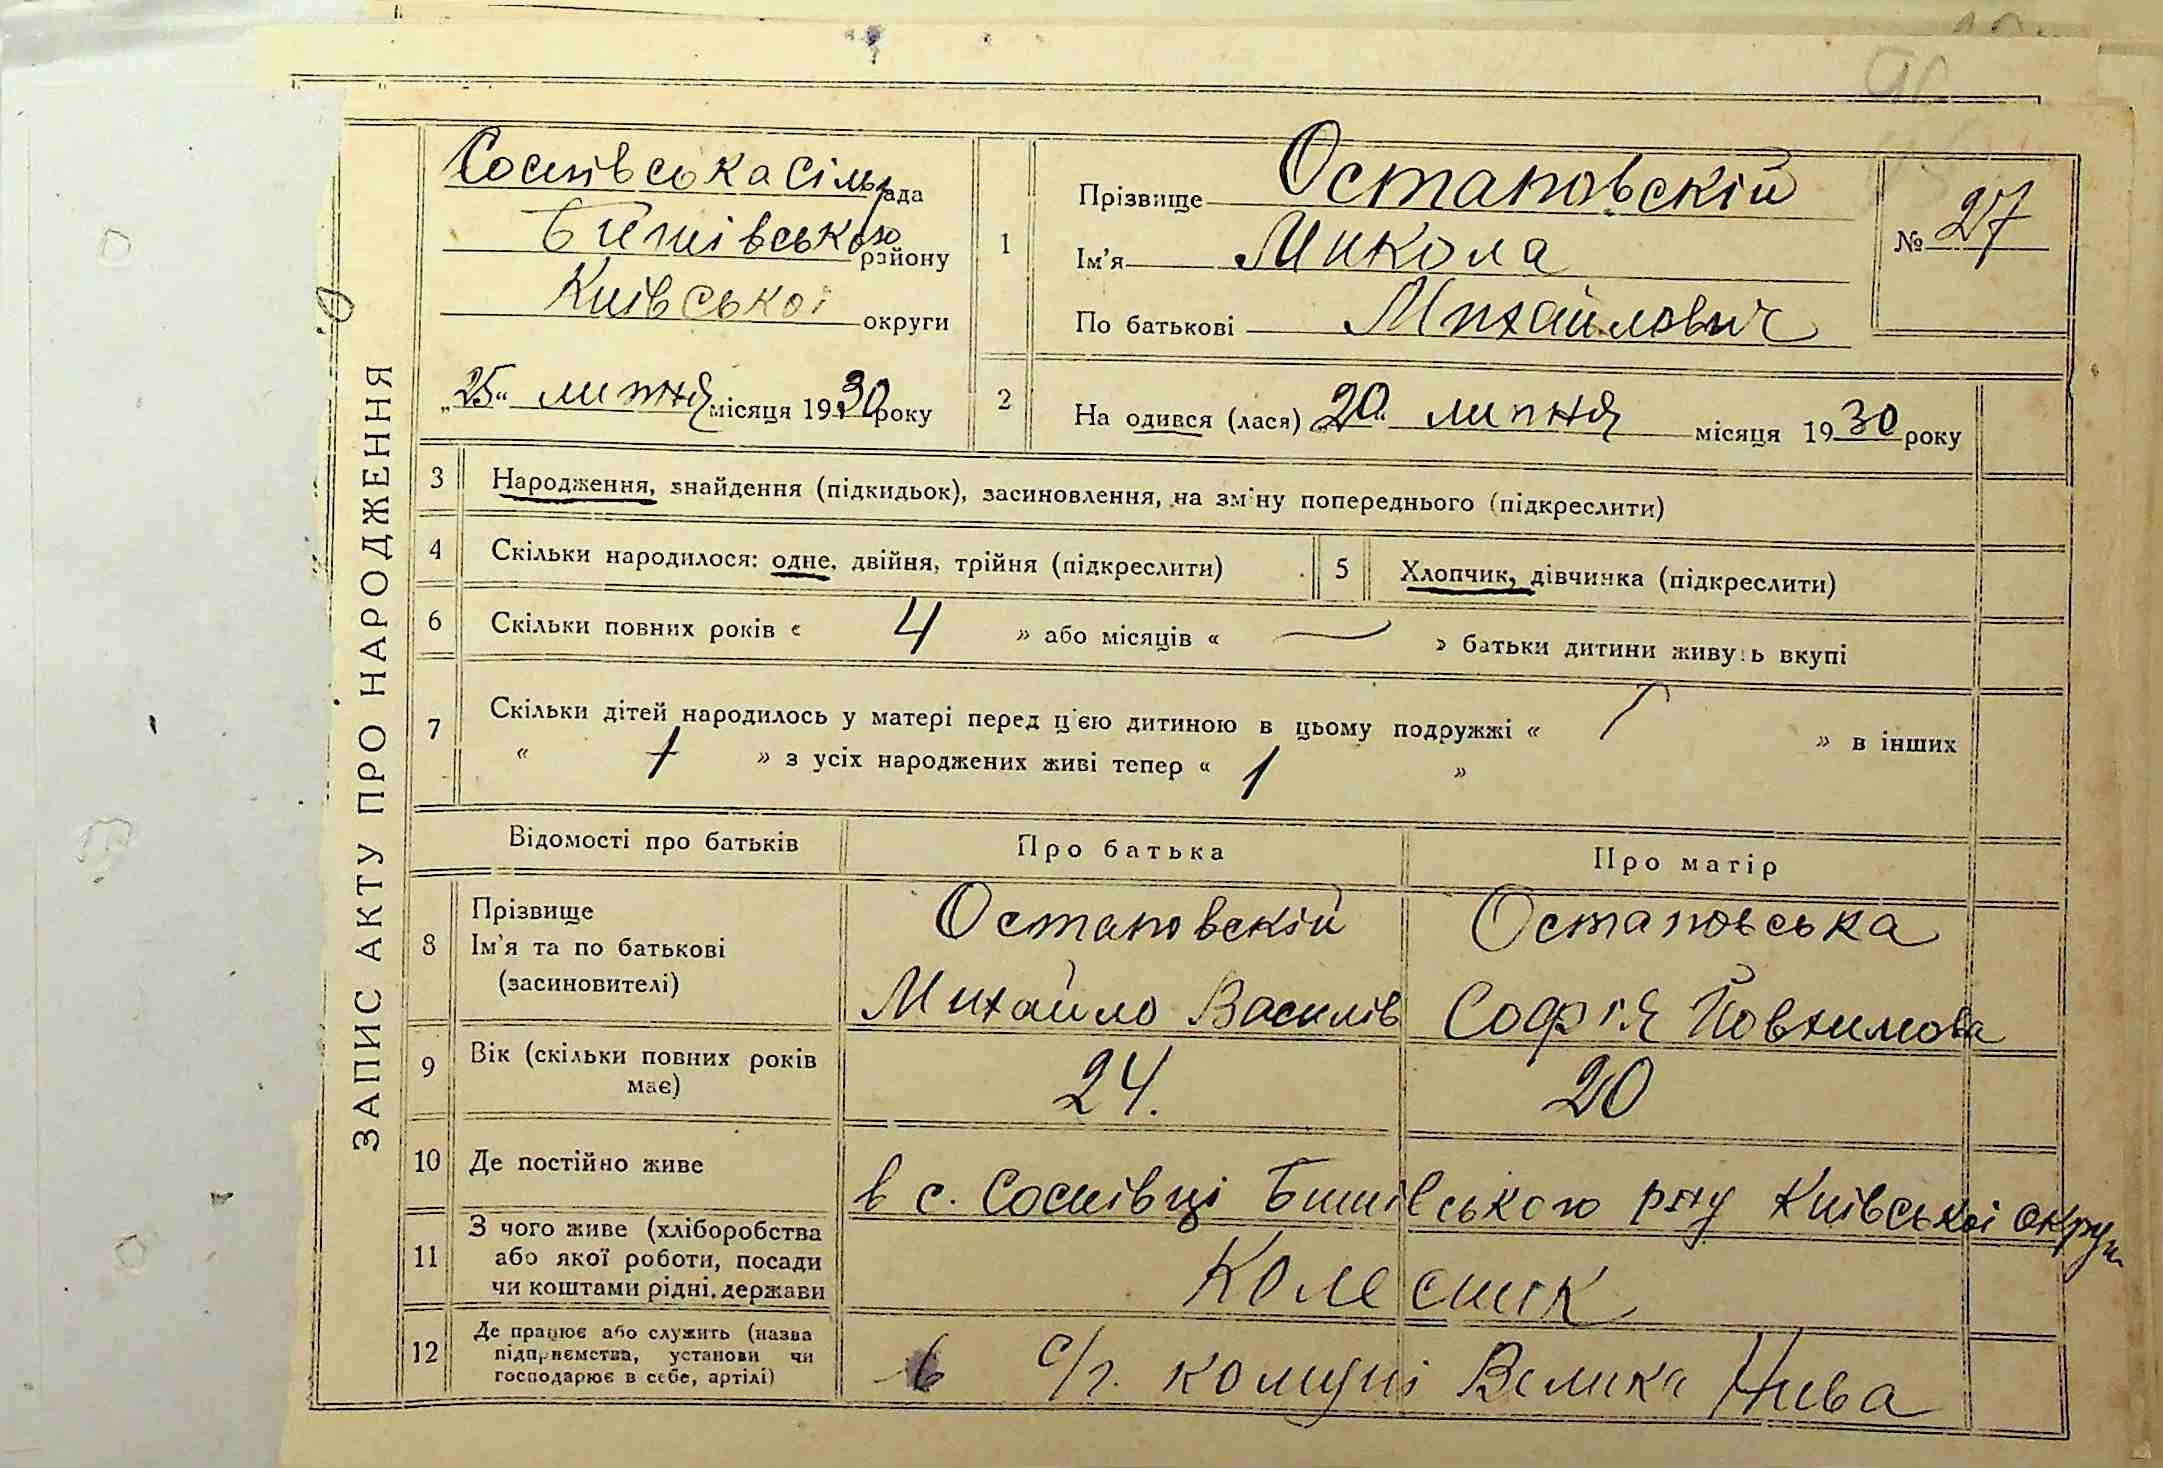 ЗАПИС АКТУ ПРО НАРОДЖЕННЯ
Соснівська Сільрада
Бишівського району
Київської округи
„25“ липня місяця 1930 року
1
Прізвище Остаповскій
Ім'я Микола
По батькові Михайлович
№ 27
2
На одився (лася) „20“ липня місяця 1930 року
3 Народження, знайдення (підкидьок), засиновлення, на зміну попереднього (підкреслити)
4 Скільки народилося: одне, двійня, трійня (підкреслити)
5 Хлопчик, дівчинка (підкреслити)
6 Скільки повних років « 4 » або місяців « — » батьки дитини живуть вкупі
7 Скільки дітей народилось у матері перед цією дитиною в цьому подружжі « 1 » в інших
« 1 » з усіх народжених живі тепер « 1 »
Відомості про батьків Про батька Про матір
8 Прізвище
Ім'я та по батькові
(засиновителі)
Остаповскій
Михайло Василів
Остаповська
Софія Йовхимова
9 Вік (скільки повних років
має)
24.
20
10 Де постійно живе
в с. Соснівці Бишівського рну Київської округи
11 З чого живе (хліборобства
або якої роботи, посади
чи коштами рідні, держави
Колесник
12 Де працює або служить (назва
підприємства, установи чи
господарює в себе, артілі)
в с/г. комуні Велика Нива